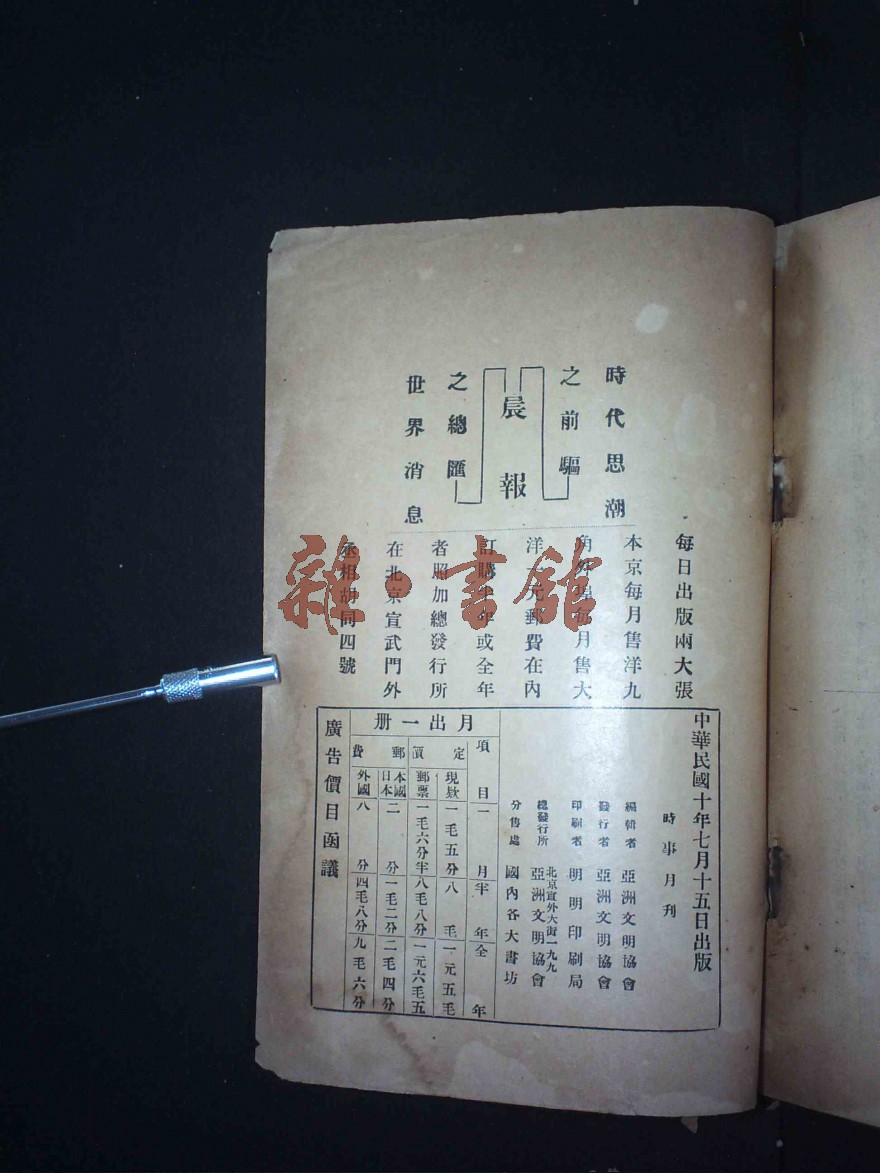 時代思潮
之前驅
晨報
之總匯
世界消息
每日出版兩大張
本京每月售洋九
角外埠每月售大
洋一元郵費在內
訂購半年或全年
者照加總發行所
在北京宣武門外
丞相胡同四號
中華民國十年七月十五日出版
時事月刊
編輯者 亞洲文明協會
發行者 亞洲文明協會
印刷者 明明印刷局
總發行所 北京宣外大街一九九 亞洲文明協會
分售處 國內各大書坊
月出一册
項目 一月 半年 全年
定價 現款 一毛五分 八毛 一元五毛
郵票 一毛六分半 八毛八分 一元六毛五
郵費 本國日本 二分 一毛二分 二毛四分
外國 八分 四毛八分 九毛六分
廣告價目函議
雜·書館